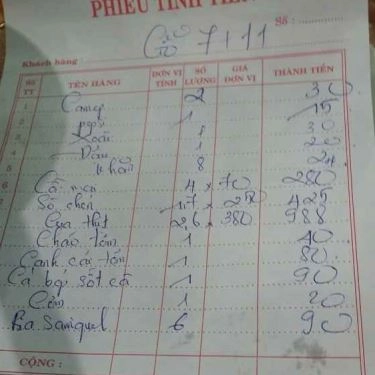 PHIẾU TÍNH TIỀN
Số :
7+11
Khách hàng
Số TT TÊN HÀNG ĐƠN VỊ TÍNH SỐ LƯỢNG GIÁ ĐƠN VỊ THÀNH TIỀN
1 2 30
2 pepsi 1 15
3 30
4 Dừa 1 20
5 khăn 8 24
6 Cá 4 x 70 280
7 Sò 1,7 x 250 425
8 2,6 x 380 988
9 Cháo tôm 1 40
10 Canh cải tôm 1 80
11 Cá bớp sốt cà 1 90
12 Cơm 1 20
13 Bia Saniquel 6 90
CỘNG :